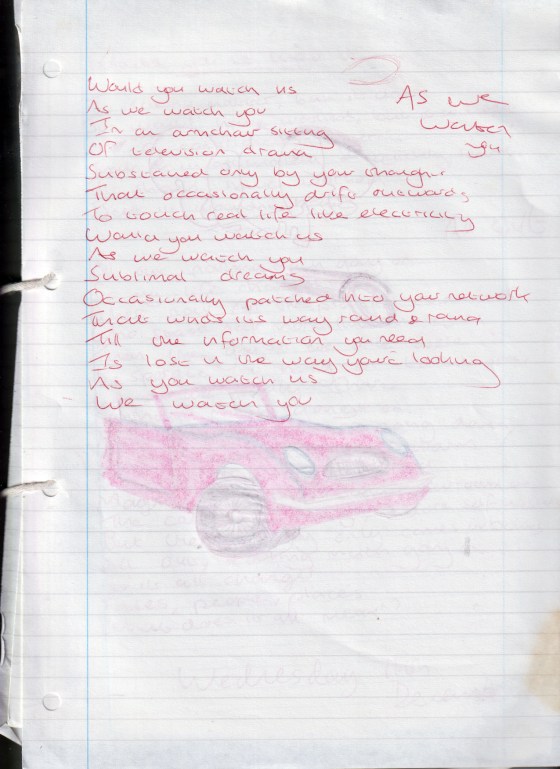 As we
watch
you
Would you watch us
As we watch you
In an armchair sitting
Of television drama
Substained only by your thoughts
That occasionally drift outwards
To touch real life like electricity
Would you watch us
As we watch you
Sublimal dreams
Occasionally patched into your network
That winds its way round & round
Till the information you need
Is lost in the way you're looking
As you watch us
We watch you
Wednesday